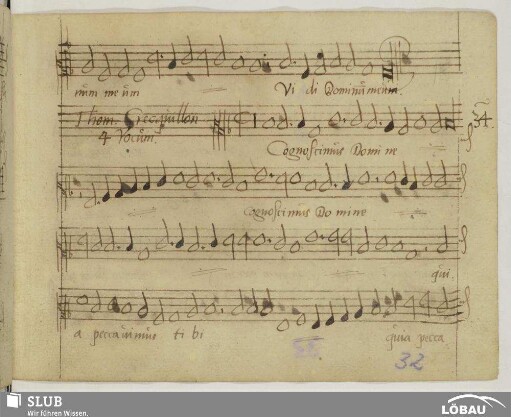 num meum Vi di Dominum meum.
Thom. Crecquillon
4 Vocum. 34.
Cognoscimus Domi ne
cognoscimus Do mine
qui.
a peccauimus ti bi quia pecca
32
SLUB
Wir führen Wissen.
LÖBAU